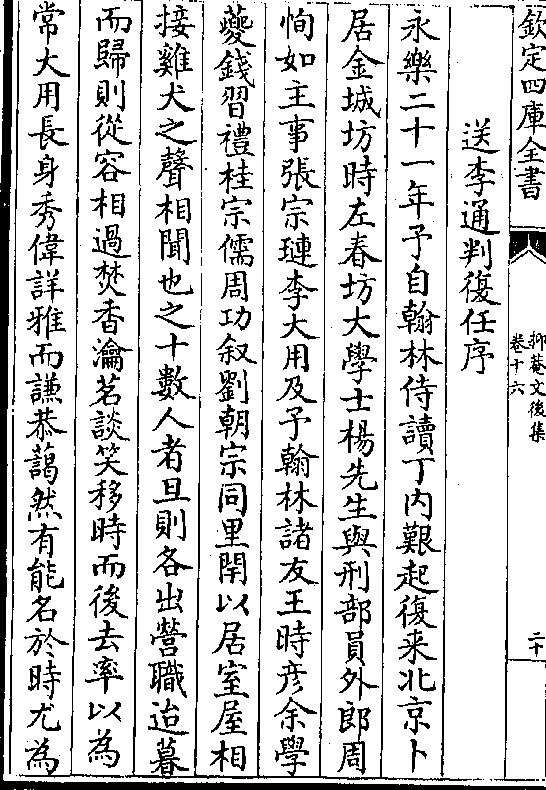 欽定四庫全書
抑菴文後集
卷十六
二十
送李通判復任序
永樂二十一年予自翰林侍讀丁内艱起復来北京卜
居金城坊時左春坊大學士楊先生與刑部員外郎周
恂如主事張宗璉李大用及予翰林諸友王時彦余學
夔錢習禮桂宗儒周功叙劉朝宗同里閈以居室屋相
接雞犬之聲相聞也之十數人者旦則各出營職迨暮
而歸則從容相過焚香瀹茗談笑移時而後去率以為
常大用長身秀偉詳雅而謙恭藹然有能名於時尤為